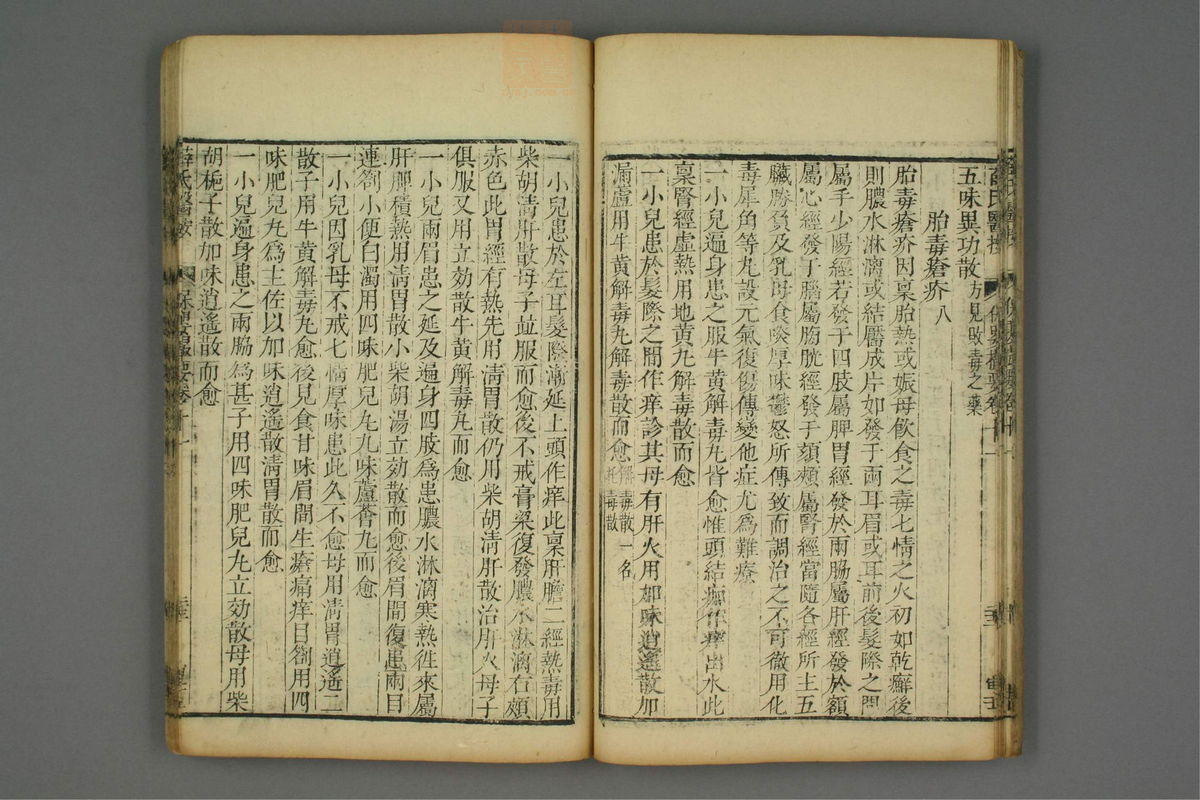 五味異功散方見敗毒之藥
胎毒瘡疥八
胎毒瘡疥因稟胎熱或娠母飲食之毒七情之火初如乾癬後
則膿水淋漓或結靨成片如發于兩耳眉或耳前後髮際之間
屬手少陽經若發于四肢屬脾胃經發於兩脇屬肝經發於額
屬心經發于腦屬膀胱經發于頦頰屬腎經當隨各經所主五
臟勝負及乳母食啖厚味鬱怒所傳致而調治之不可徹用化
毒犀角等丸設元氣復傷傳變他症尤爲難療
一小兒遍身患之服牛黄解毒丸皆愈惟頭結痂作痒出水此
稟腎經虛熱用地黄丸解毒散而愈
一小兒患於髮際之間作痒診其母有肝火用加味逍遙散加
漏蘆用牛黄解毒丸解毒散而愈解毒散一名托毒散
一小兒患於左耳髮際漸延上頭作痒此稟肝膽二經熱毒用
柴胡清肝散母子並服而愈後不戒膏粱復發膿水淋漓右頰
赤色此胃經有熱先用清胃散仍用柴胡清肝散治肝火母子
俱服又用立効散牛黄解毒丸而愈
一小兒兩眉患之延及遍身四肢爲患膿水淋漓寒熱徃來屬
肝脾積熱用清胃散小柴胡湯立効散而愈後眉間復患兩目
連劄小便白濁用四味肥兒丸九味蘆薈丸而愈
一小兒因乳母不戒七情厚味患此久不愈母用清胃逍遙二
散子用牛黄解毒丸愈後兒食甘味眉間生瘡痛痒目劄用四
味肥兒丸爲主佐以加味逍遙散清胃散而愈
一小兒遍身患之兩脇爲甚子用四味肥兒丸立効散母用柴
胡梔子散加味逍遙散而愈
薛氏醫按 保嬰撮要卷十一